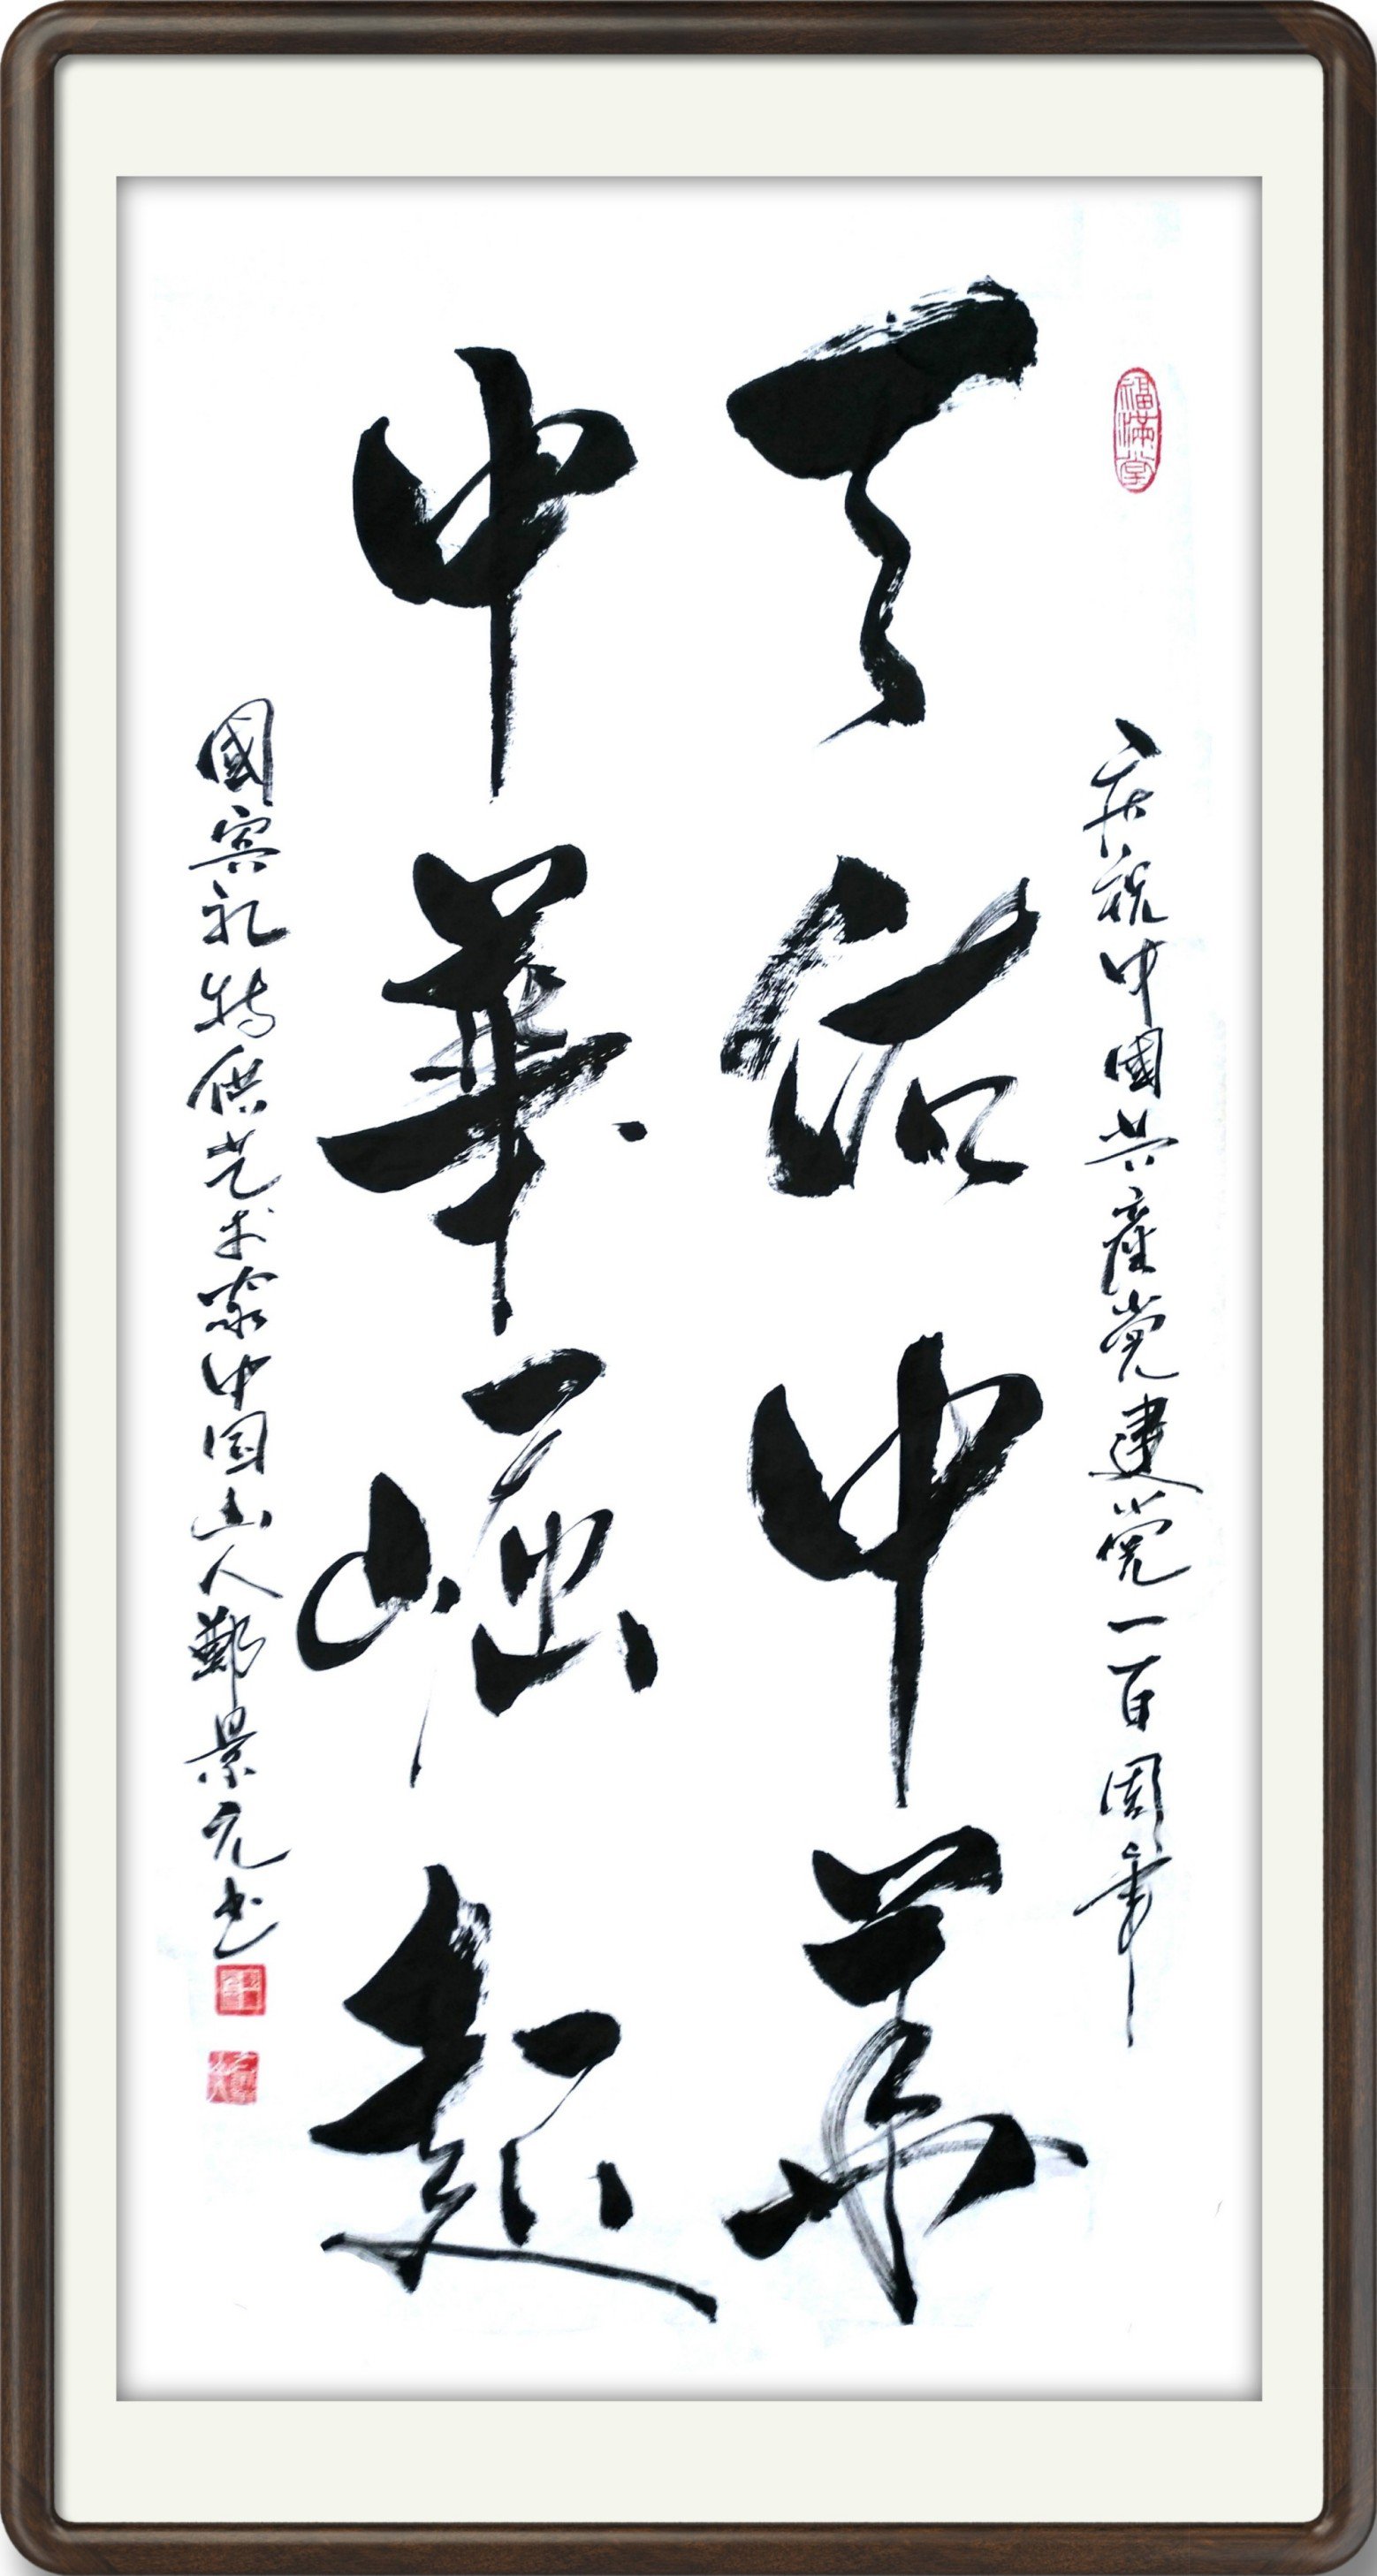 福满堂
庆祝中國共產党建党一百周年
天佑中華
中華崛起
國宾礼特供艺术家中国山人鄭景元书